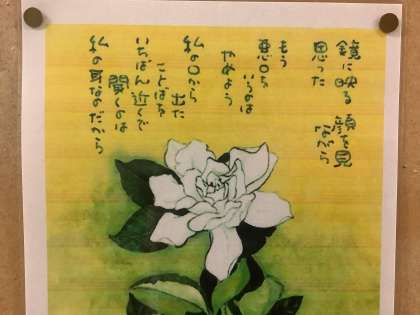 鏡に映る 顔を見
ながら
思った
もう
悪口を
いうのは
やめよう
私の口から
出た
ことばを
いちばん近くで
聞くのは
私の耳なのだから